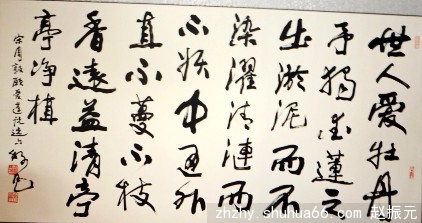 世人愛牡丹
予獨愛蓮之
出淤泥而不
染濯清漣而
不妖中通外
直不蔓不枝
香遠益清亭
亭净植
宋周敦頤愛蓮說選
zhzhy.shuhua66.com 赵振元